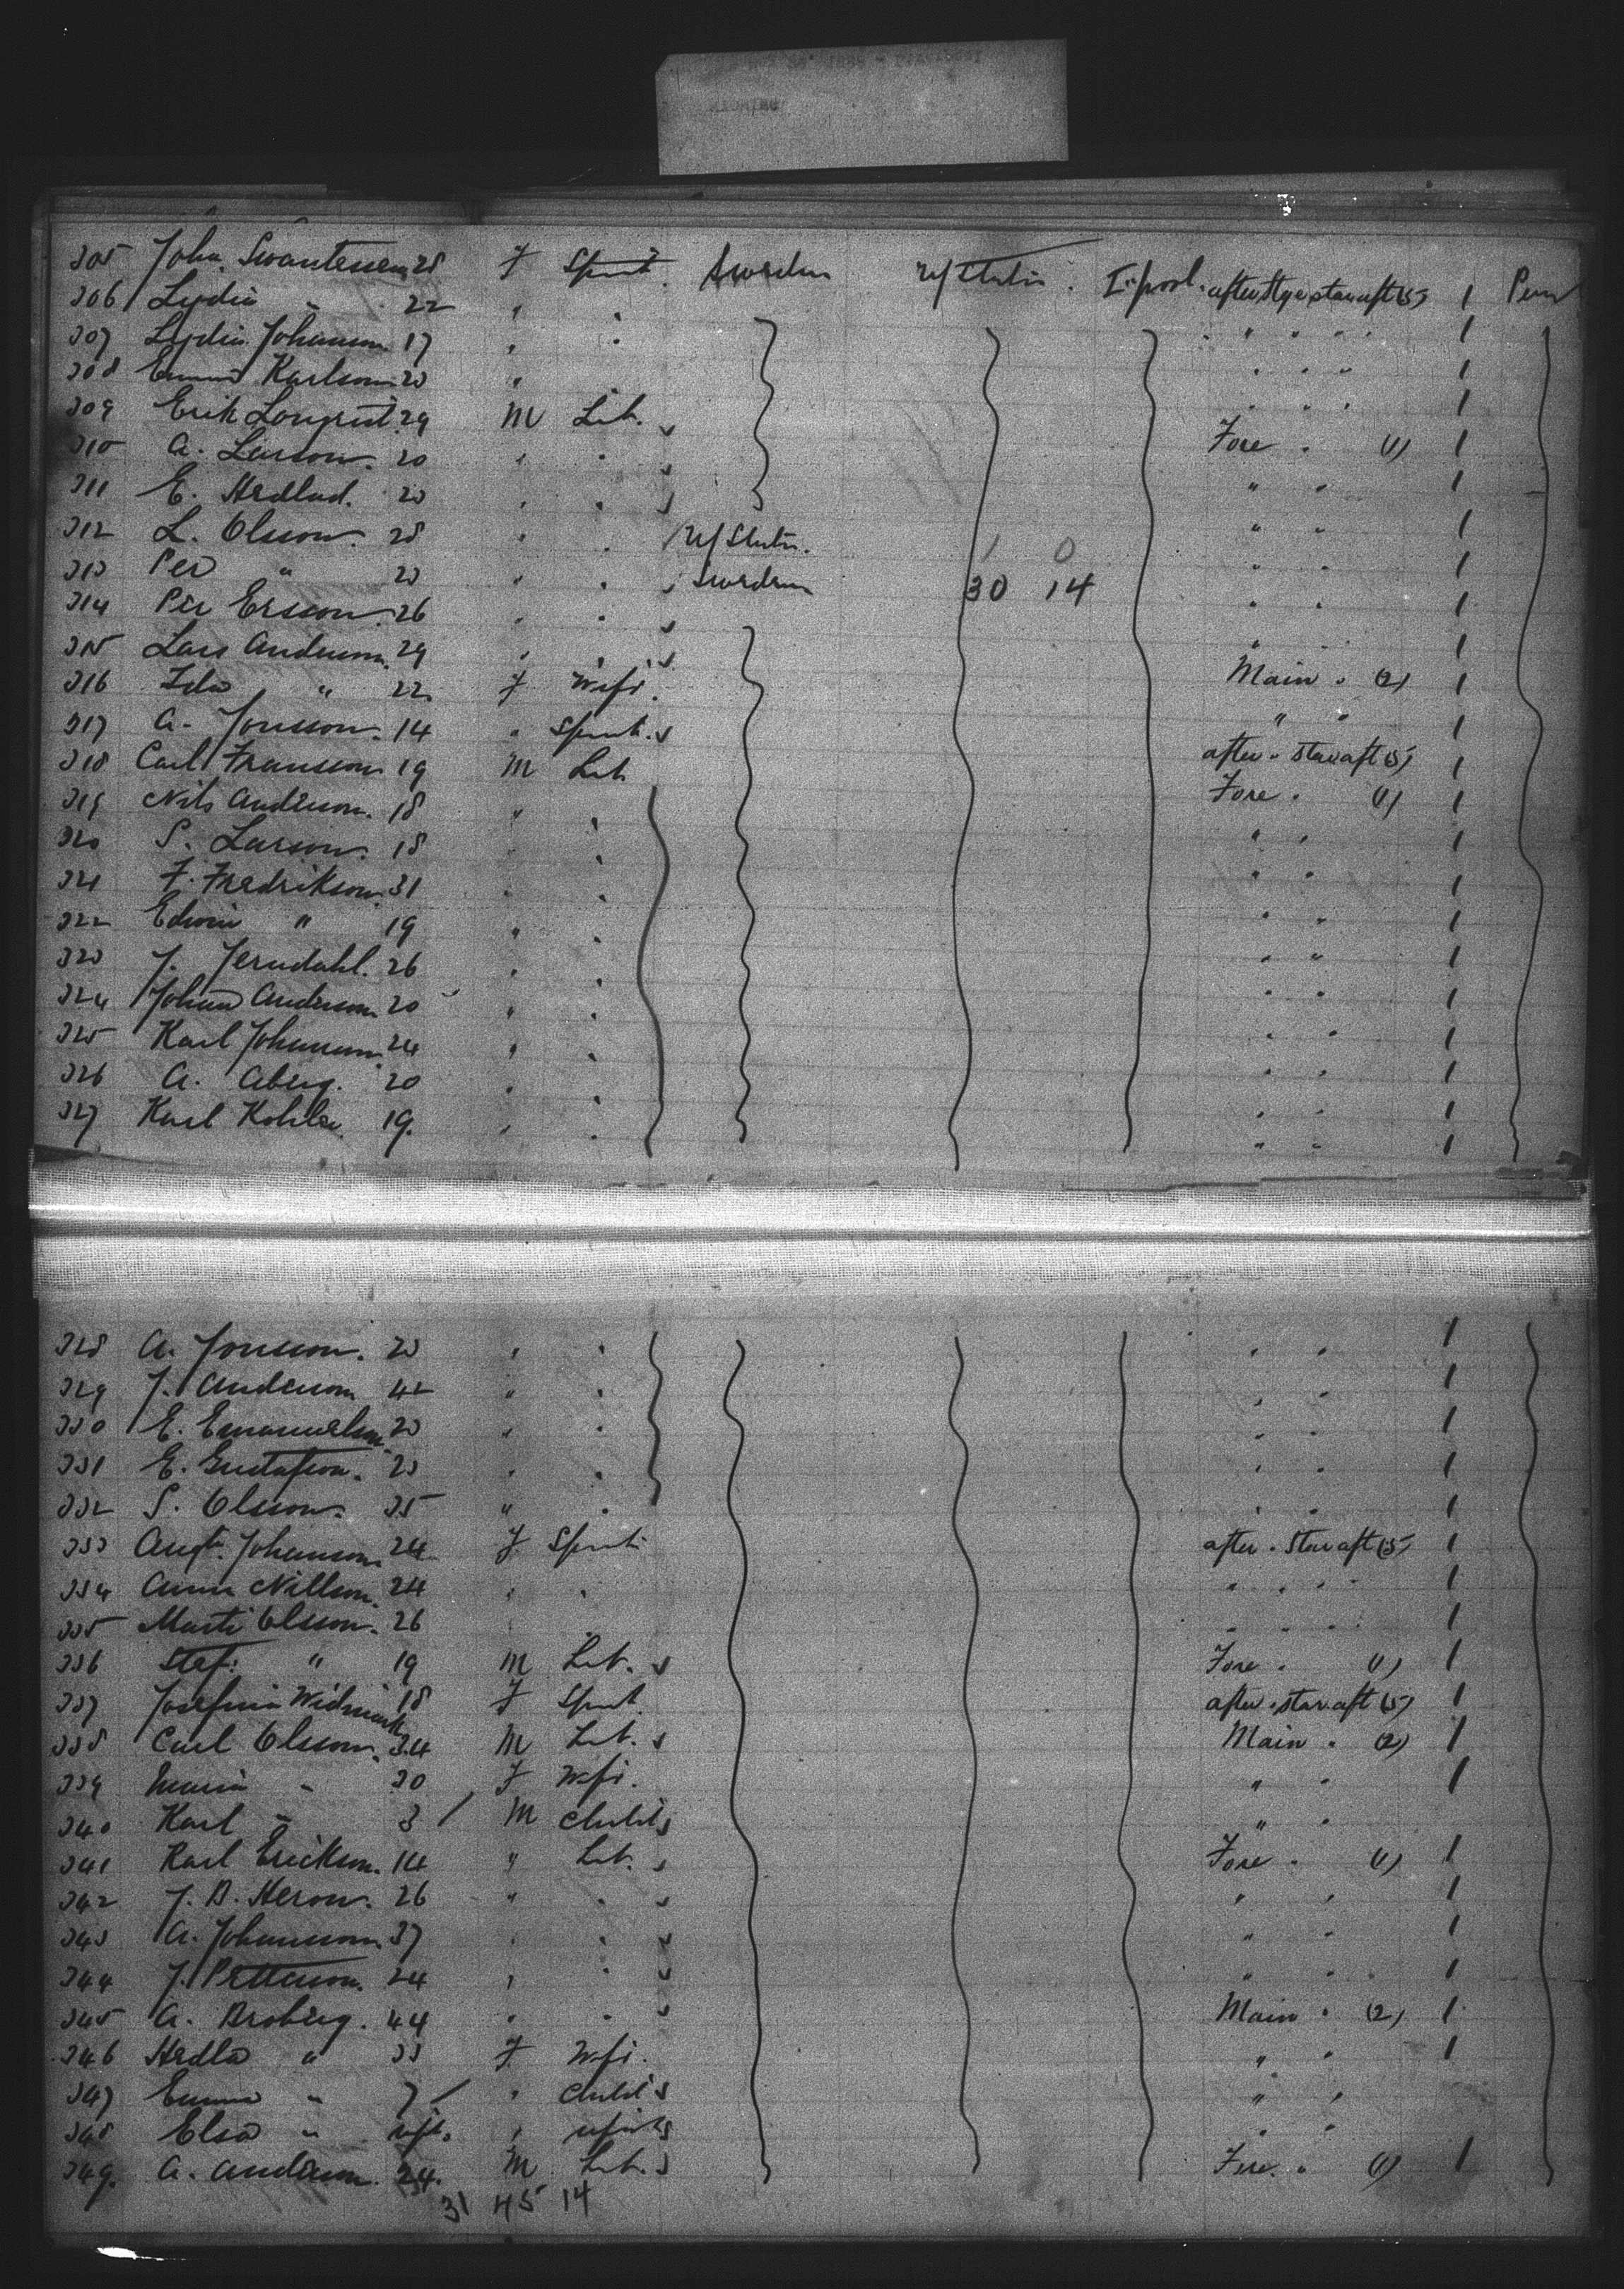 305 John. Swantesson 28 F Spinst. Sweden U/States. L'pool. after Stge star aft (5) 1 Perm
306 Lydia " 22 " " " " " " 1
307 Lydia Johanson 17 " " " " " 1
308 Emma Karlson 20 " " " " 1
309 Erik Lonquist 29 M Lab. Fore " (1) 1
310 A. Larson. 20 " " " " 1
311 E. Hedlud. 20 " " " " 1
312 L. Olsson. 28 " " U/States. 1 0 " " 1
313 Per " 23 " " Sweden 30 14 " " 1
314 Per Ersson. 26 " " " " 1
315 Lars Anderson. 29 " " Main " (2) 1
316 Ida " 22. F Wife. " " 1
317 A. Jonsson. 14 " Spinst. after " star aft (5) 1
318 Carl Franson 19 M Lab. Fore " (1) 1
319 Nils Anderson. 18 " " " " 1
320 S. Larson. 18 " " " " 1
321 F. Fredrikson. 31 " " " " 1
322 Edwin " 19 " " " " 1
323 J. Jerndahl. 26 " " " " 1
324 Johan Anderson 20 " " " " 1
325 Karl Johanson 24 " " " " 1
326 A. Aberg. 20 " " " " 1
327 Karl Kohler 19. " " " " 1
328 A. Jonsson. 23 " " " " 1
329 J. Anderson 42 " " " " 1
330 E. Emanuelson 23 " " " " 1
331 E. Gustafson. 23 " " " " 1
332 S. Olsson. 35 " " " " 1
333 Augta. Johanson 24 F Spinst after " star aft (5) 1
334 Anna Nillson. 24 " " " " " " 1
335 Marti Olsson. 26 " " " " " " 1
336 Stef: " 19 M Lab. Fore " (1) 1
337 Josefina Widmark 18 F Spinst after " star aft (5) 1
338 Carl Olsson. 34 M Lab. Main " (2) 1
339 Maria " 30 F Wife. " " 1
340 Karl " 3 / M Child " "
341 Karl Erickson. 14 " Lab. Fore " (1) 1
342 J. B. Heron. 26 " " " " 1
343 A. Johansson 37 " " " " 1
344 J. Petterson. 24 " " " " 1
345 A. Broberg. 44 " " Main " (2) 1
346 Hedla " 33 F Wife. " " 1
347 Emma " 7 / " Child " "
348 Elsa " inft. " infant " "
349. A. Anderson. 24. M Lab. Fore. " (1) 1
31 45 14